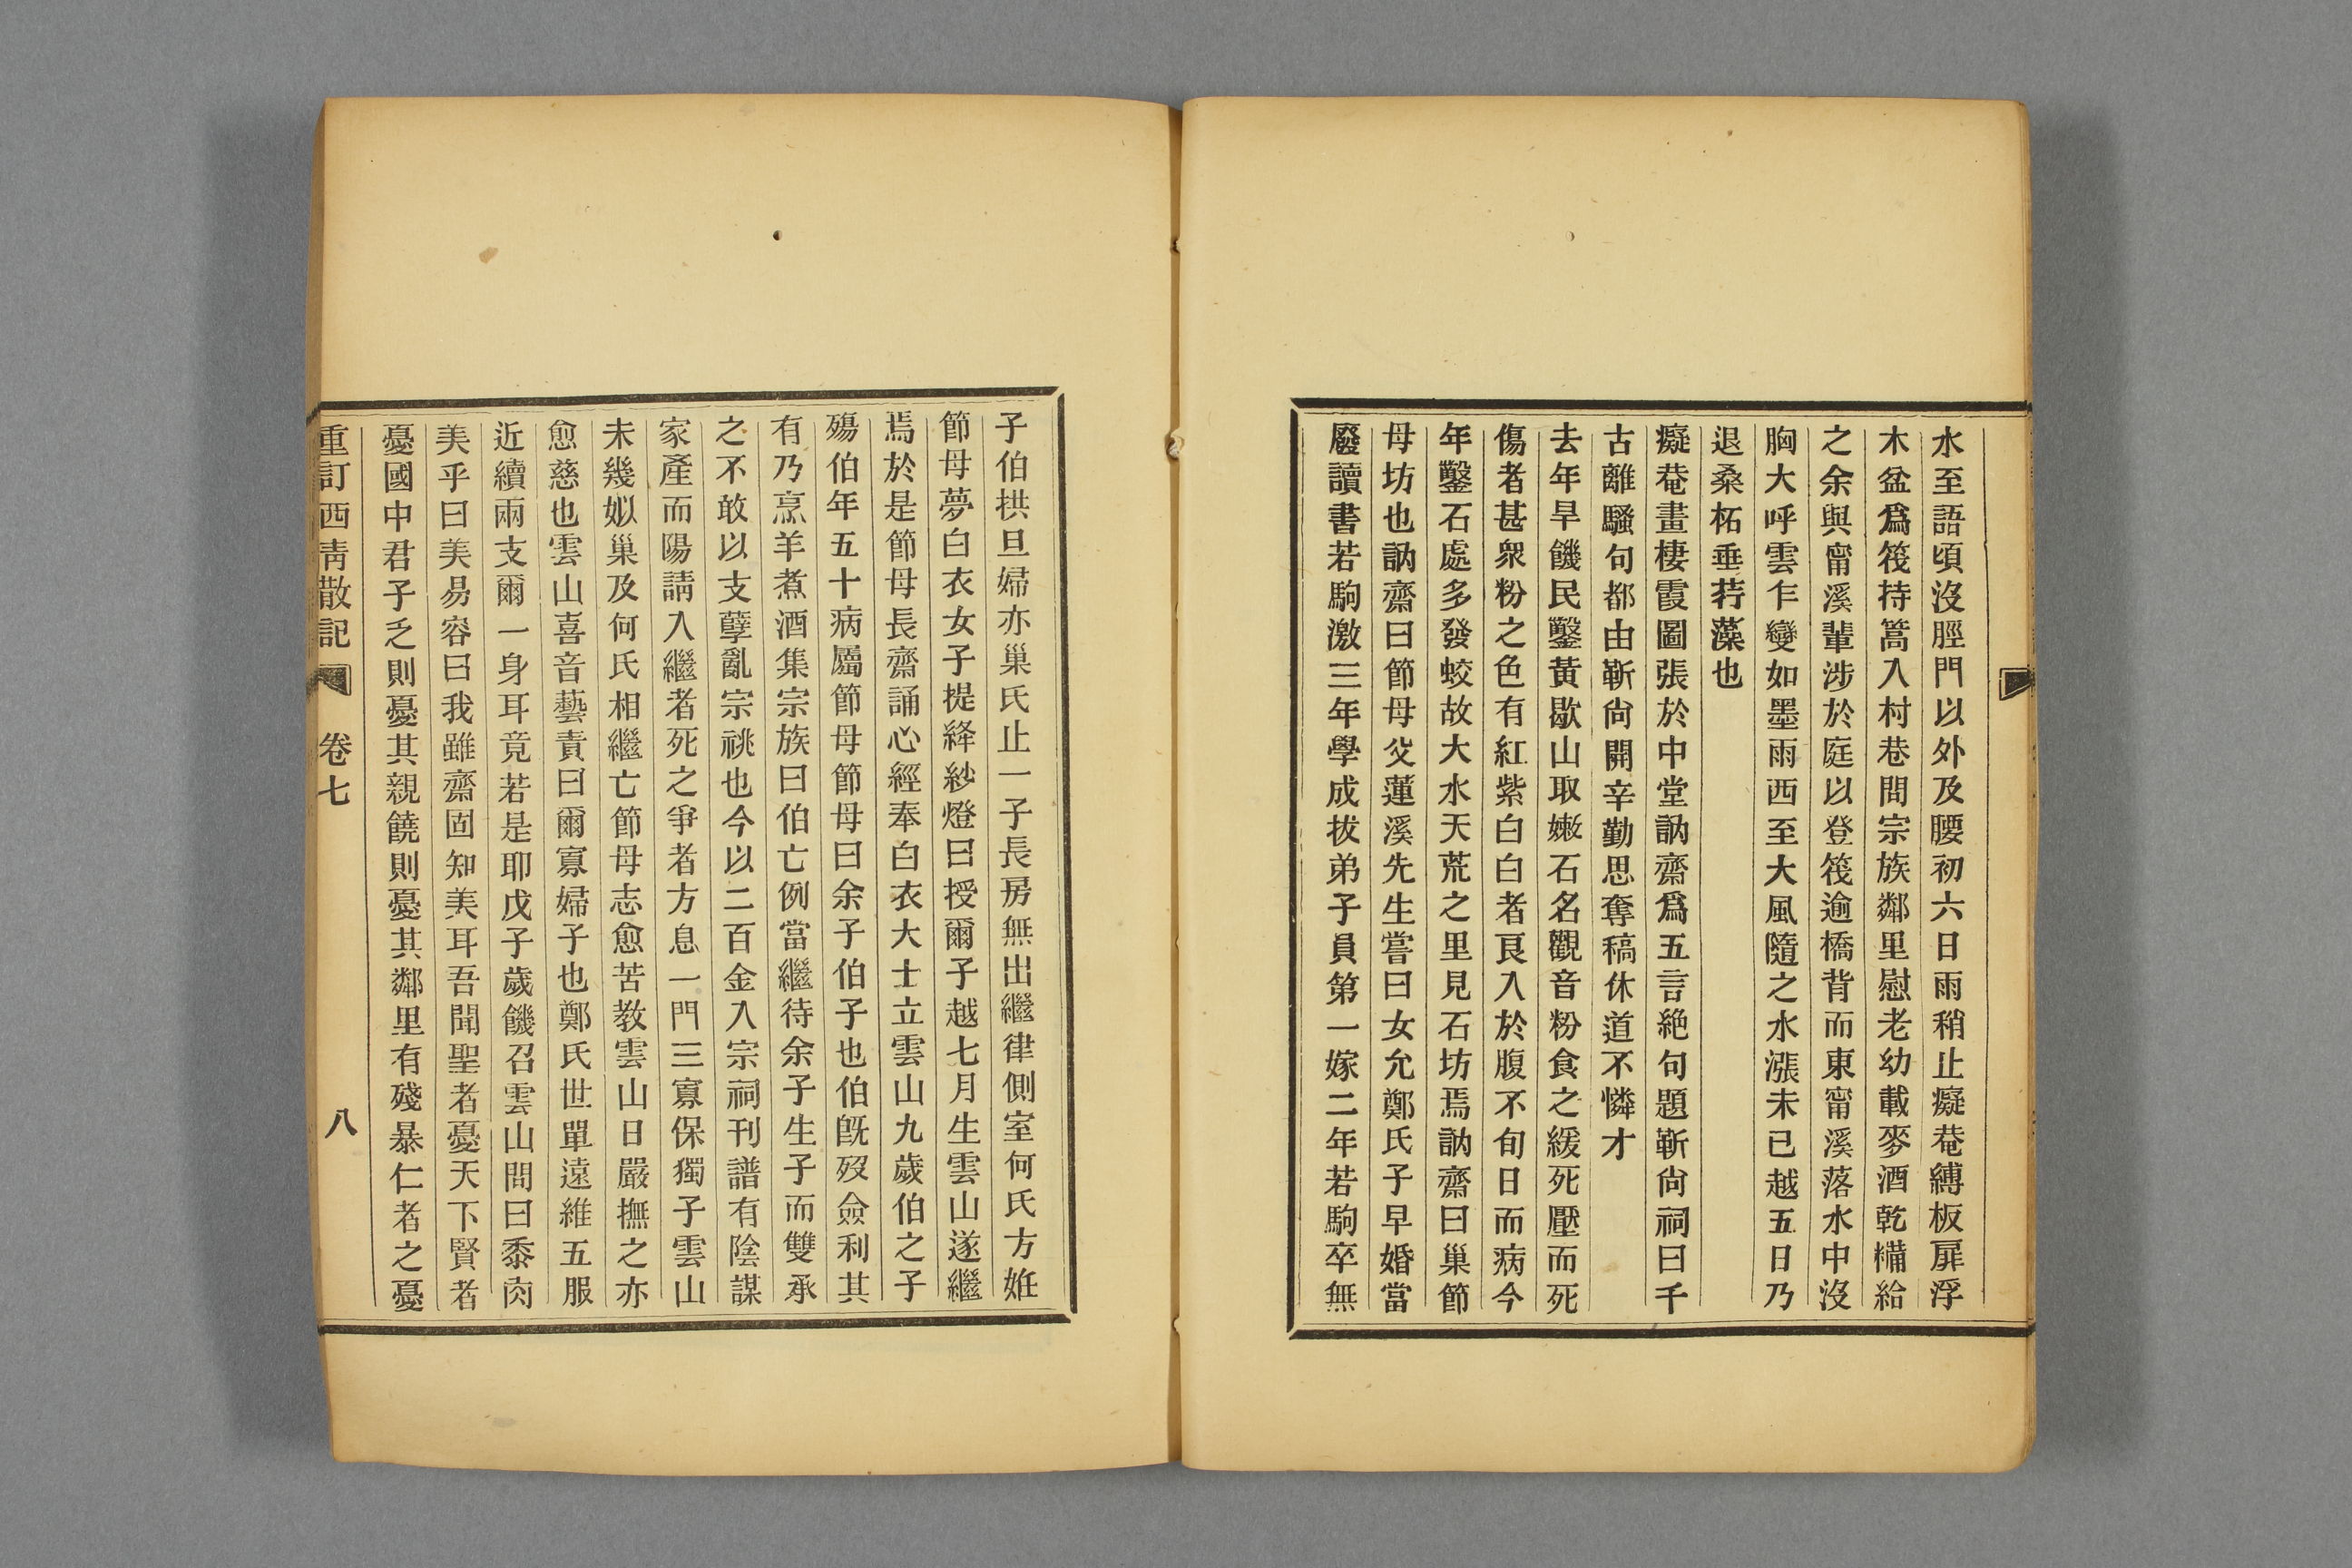 水至語頃沒脛門以外及腰初六日雨稍止癡菴縛板扉浮
木盆爲筏持篙入村巷間宗族鄰里慰老幼載麥酒乾糒給
之余與甯溪輩涉於庭以登筏逾橋背而東甯溪落水中沒
胸大呼雲乍變如墨雨西至大風隨之水漲未已越五日乃
退桑柘垂荇藻也
癡菴畫棲霞圖張於中堂訥齋爲五言絶句題靳尙祠曰千
古離騷句都由靳尙開辛勤思奪稿休道不憐才
去年旱饑民鑿黃歇山取嫩石名觀音粉食之緩死壓而死
傷者甚衆粉之色有紅紫白白者良入於腹不旬日而病今
年鑿石處多發蛟故大水天荒之里見石坊焉訥齋曰巢節
母坊也訥齋曰節母父蓮溪先生嘗曰女允鄭氏子早婚當
廢讀書若駒激三年學成拔弟子員第一嫁二年若駒卒無
子伯拱旦婦亦巢氏止一子長房無出繼律側室何氏方姙
節母夢白衣女子提絳紗燈曰授爾子越七月生雲山遂繼
焉於是節母長齋誦心經奉白衣大士立雲山九歲伯之子
殤伯年五十病屬節母節母曰余子伯子也伯旣歿僉利其
有乃烹羊煮酒集宗族曰伯亡例當繼待余子生子而雙承
之不敢以支孽亂宗祧也今以二百金入宗祠刊譜有陰謀
家產而陽請入繼者死之爭者方息一門三寡保獨子雲山
未幾姒巢及何氏相繼亡節母志愈苦敎雲山日嚴撫之亦
愈慈也雲山喜音藝責曰爾寡婦子也鄭氏世單遠維五服
近續兩支爾一身耳竟若是耶戊子歲饑召雲山問曰黍肉
美乎曰美易容曰我雖齋固知美耳吾聞聖者憂天下賢者
憂國中君子乏則憂其親饒則憂其鄰里有殘暴仁者之憂
重訂西青散記 卷七 八